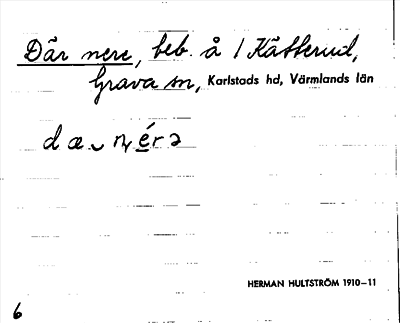 Där nere, beb. å 1 Kätterud,
Grava sn, Karlstads hd, Värmlands län
dæ‿ néra
HERMAN HULTSTRÖM 1910–11
6